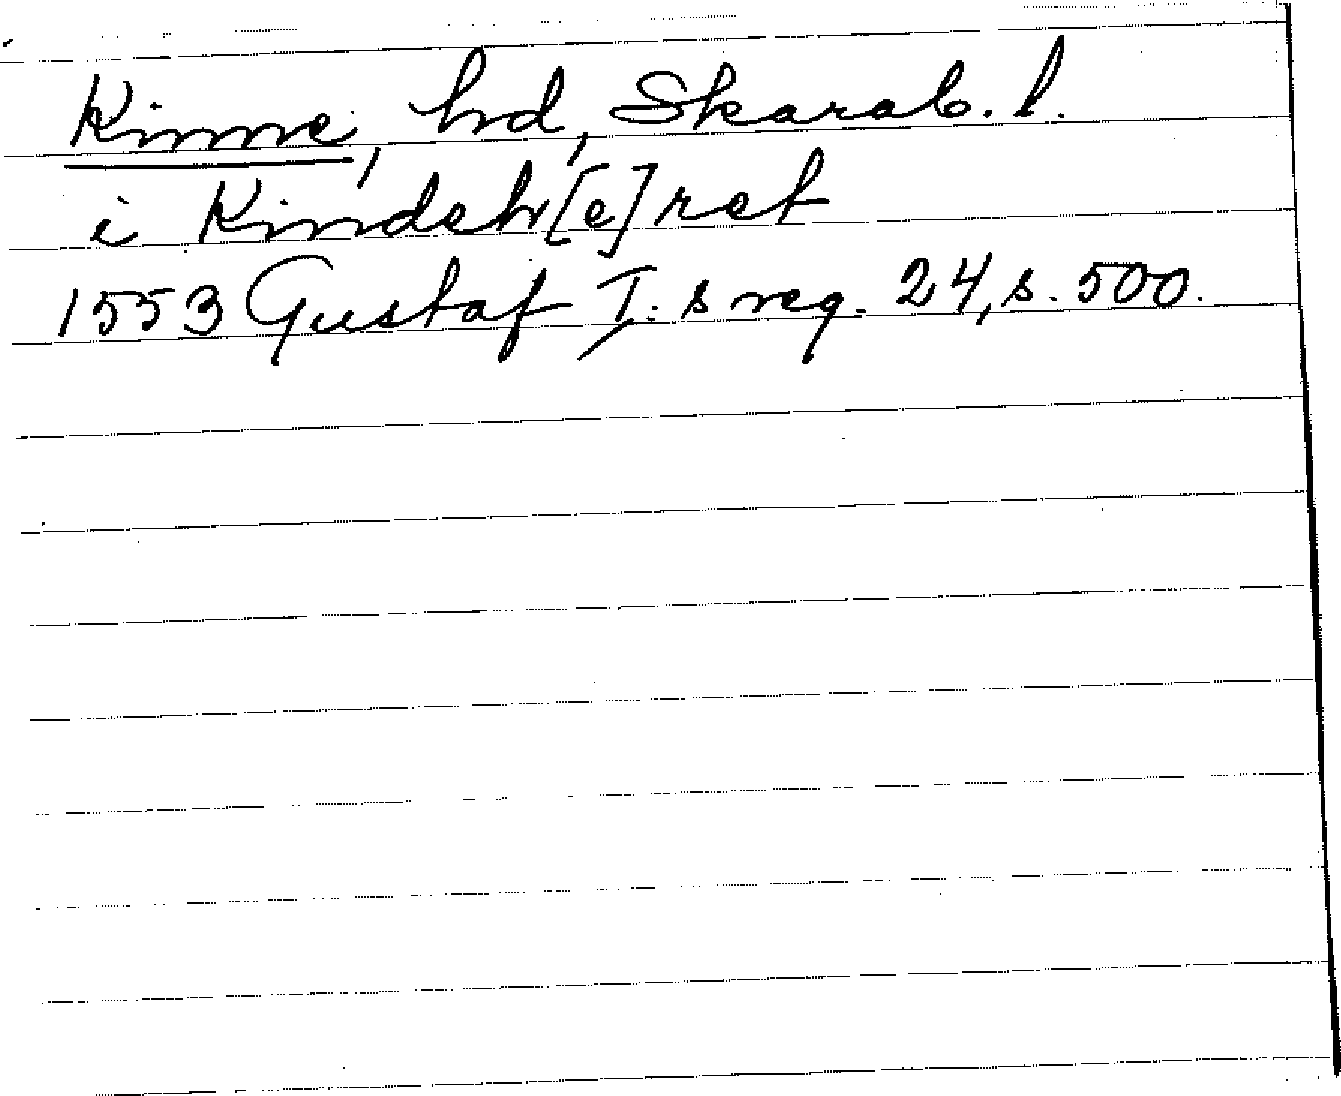 Kinne, hd, Skarab. l.
i Kindeh[e]ret
1553 Gustaf I:s reg. 24, s. 500.